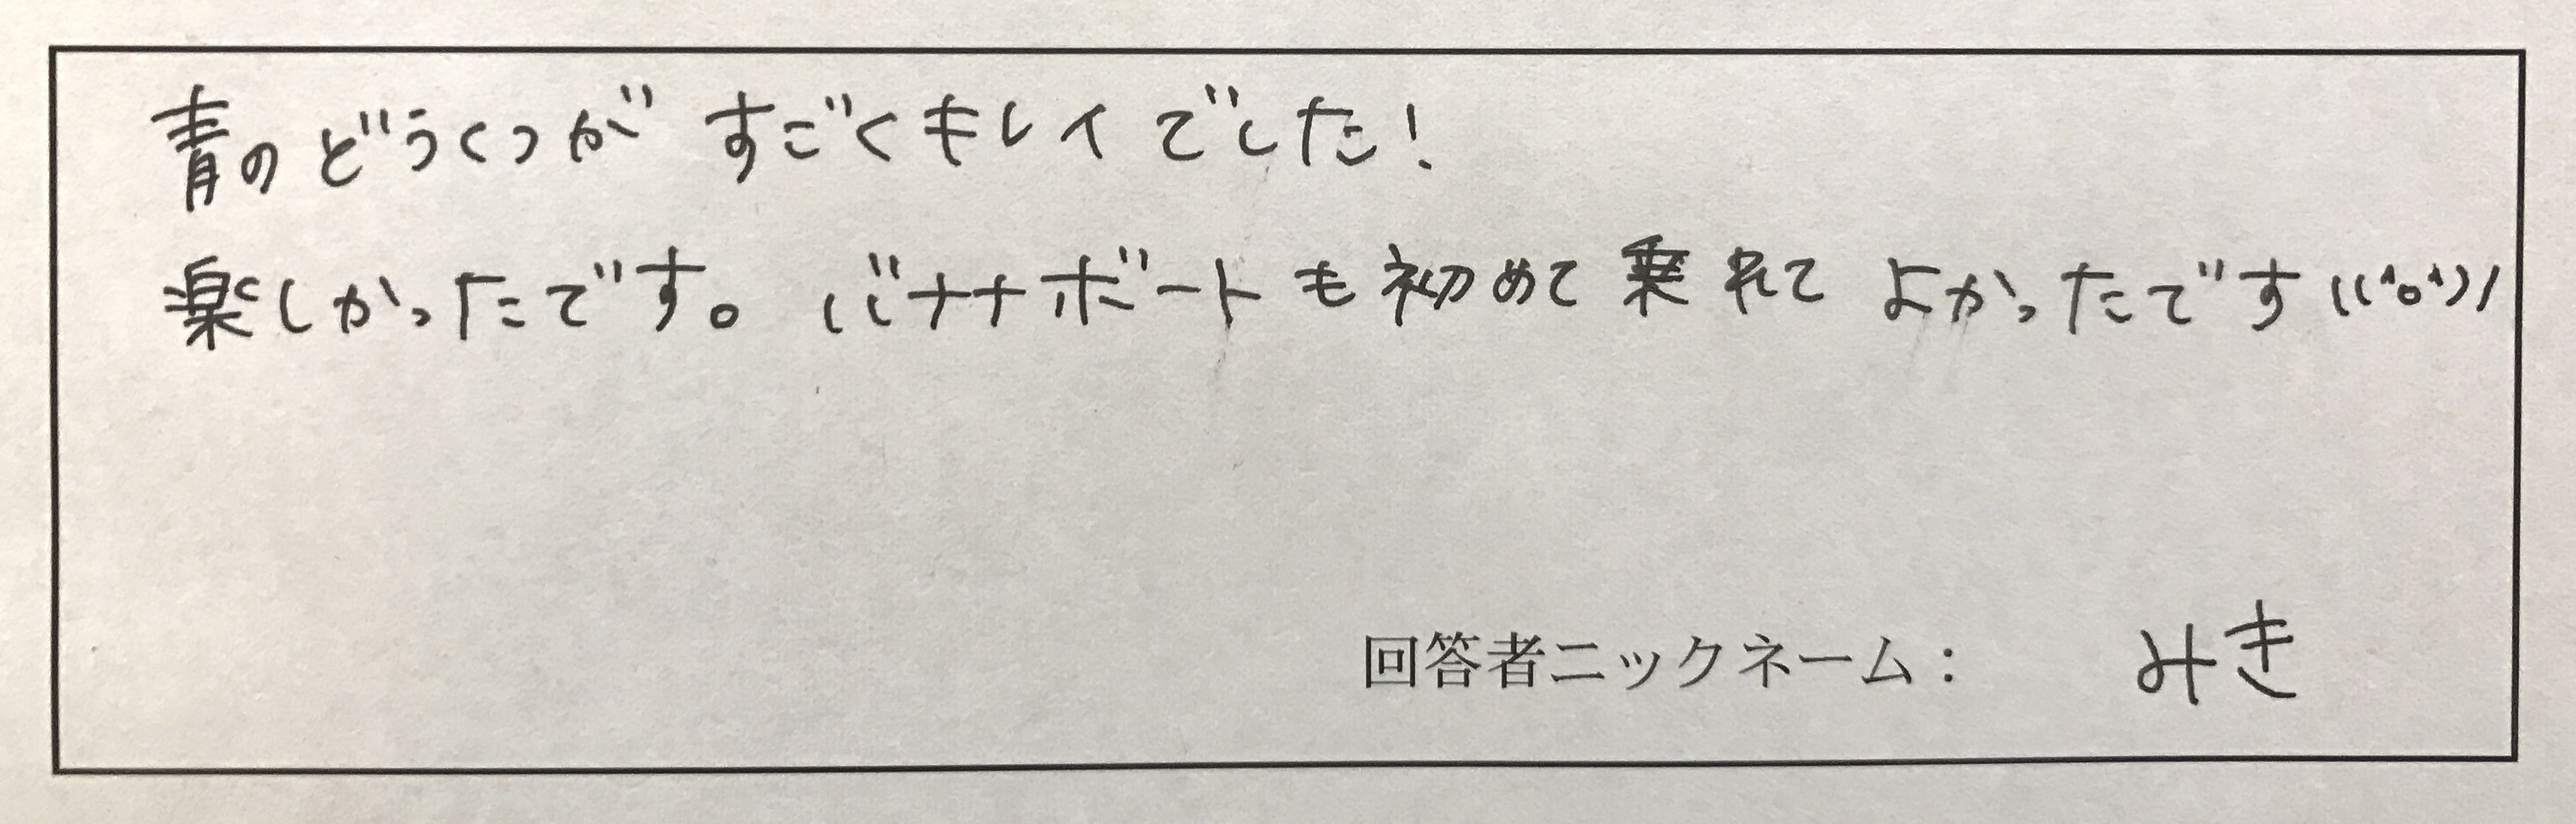 青のどうくつがすごくキレイでした!
楽しかったです。バナナボートも初めて乗れてよかったです\\(^o^)/
回答者ニックネーム: みき